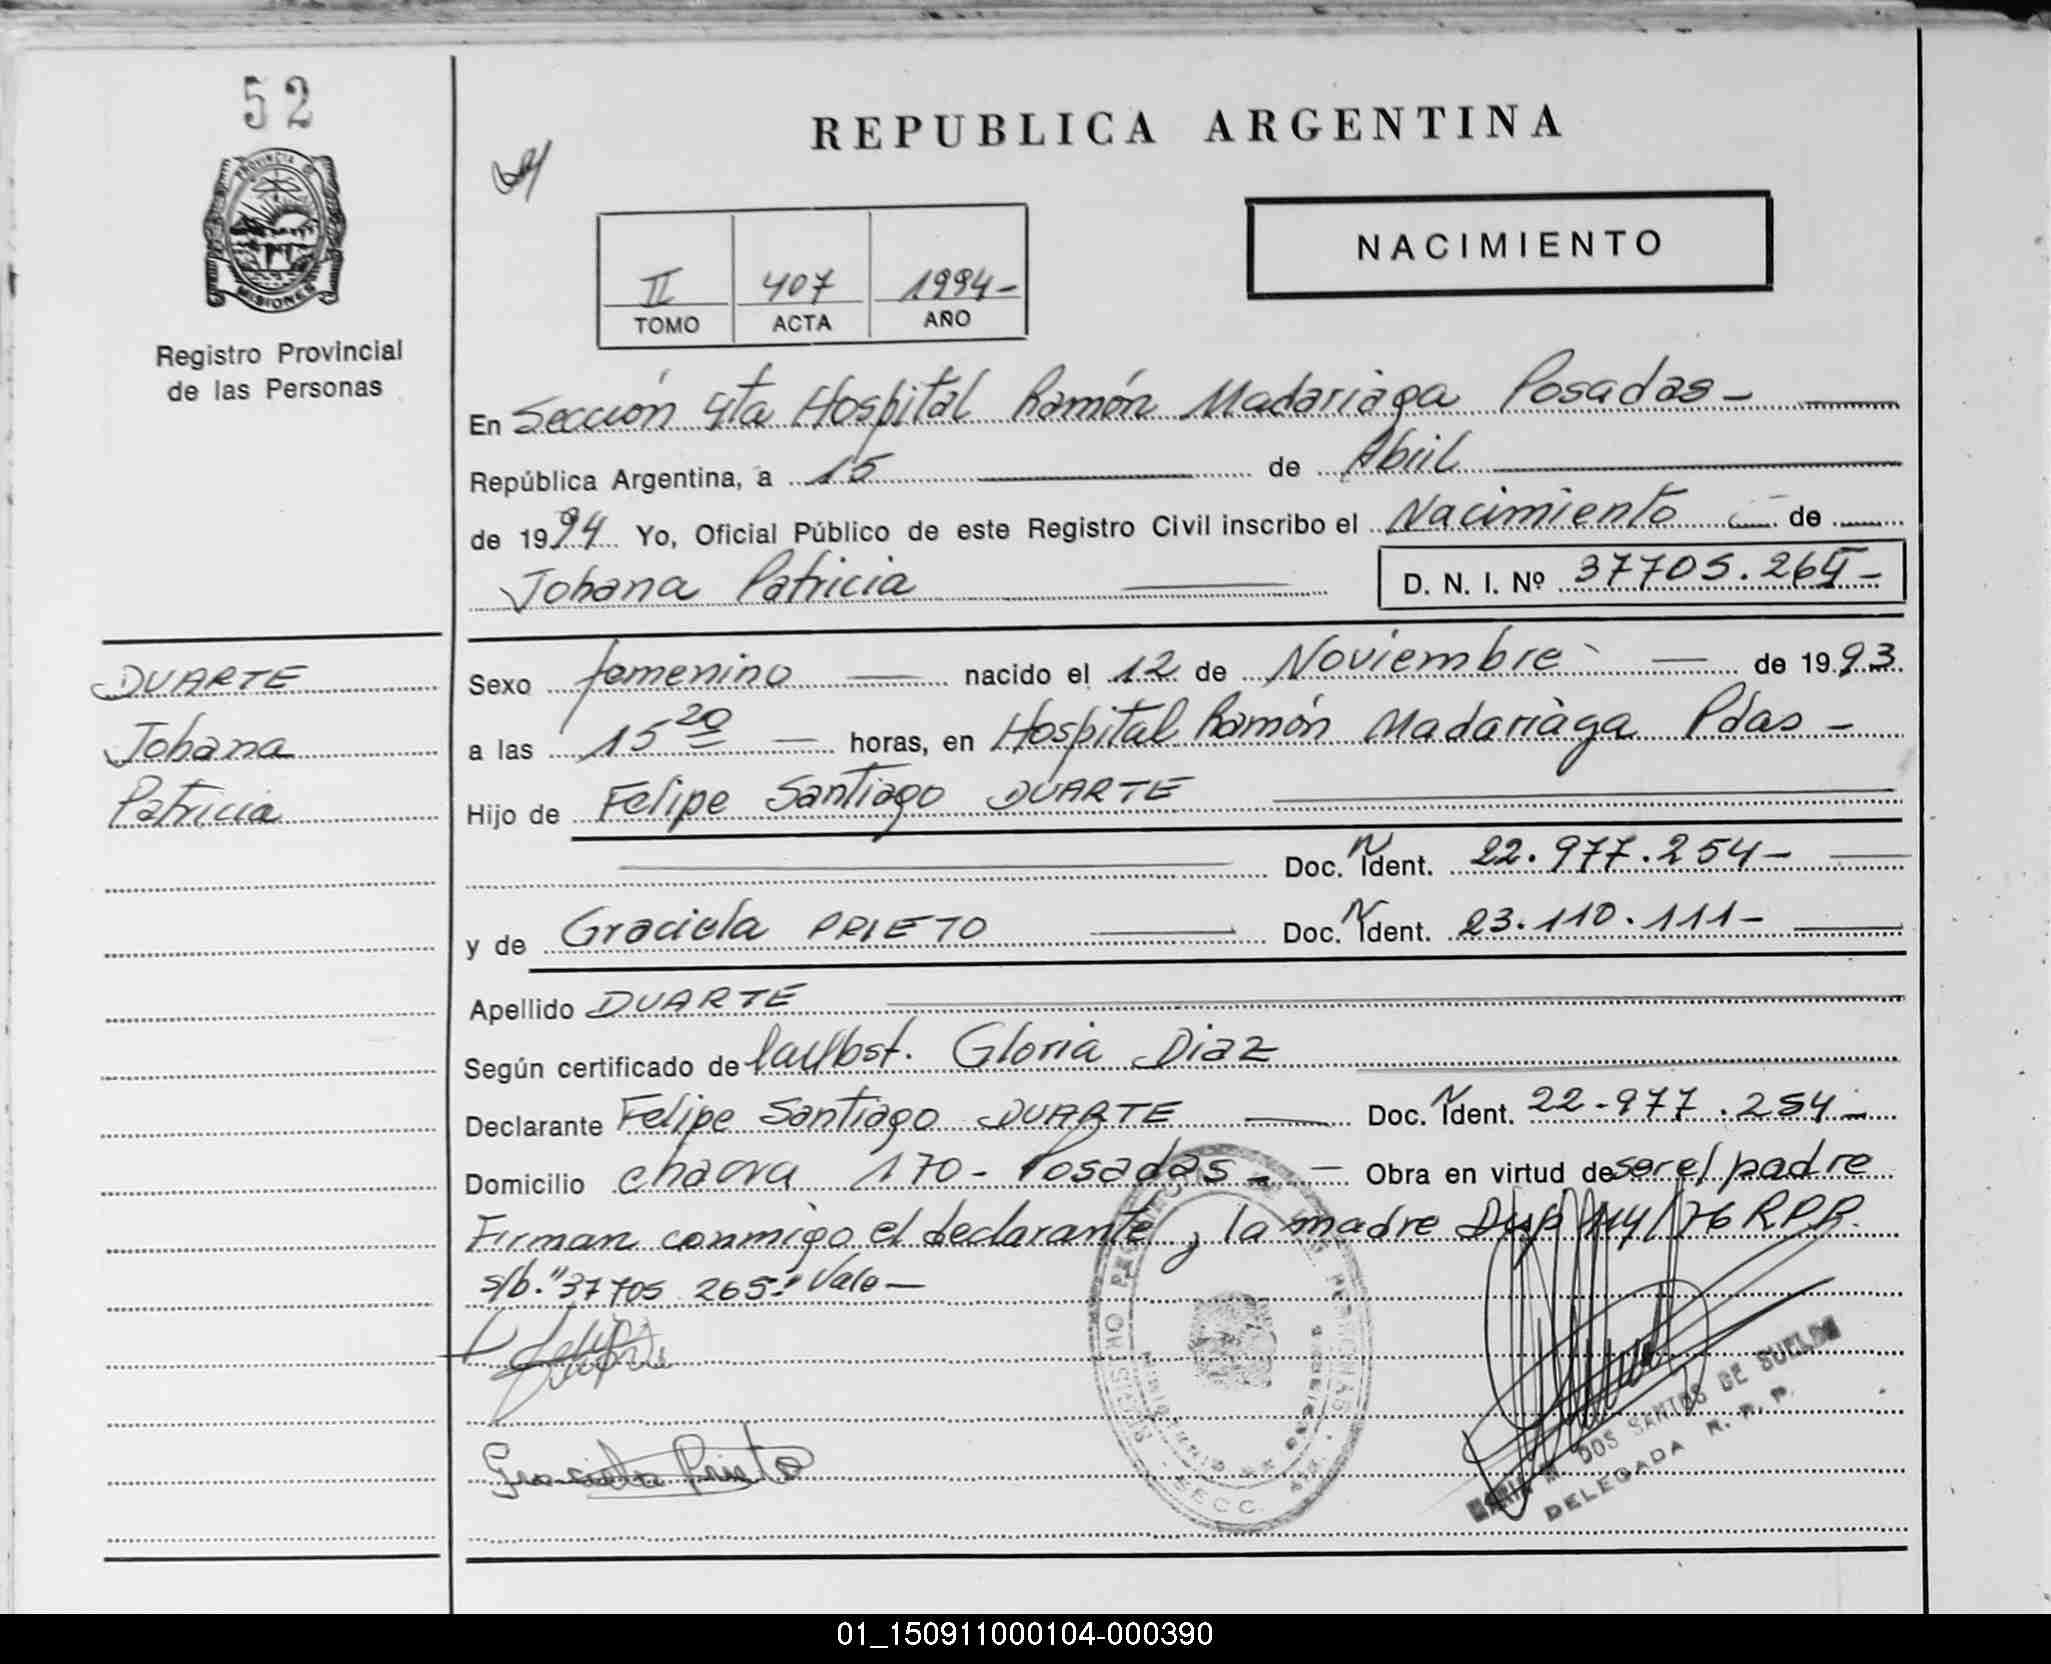 52
REPUBLICA ARGENTINA
PROVINCIA DE
MISIONES
Registro Provincial
de las Personas
NACIMIENTO
II 407 1994-
TOMO ACTA AÑO
En Sección 4ta Hospital Ramón Madariaga Posadas-
República Argentina, a 15 de Abril
de 1994 Yo, Oficial Público de este Registro Civil inscribo el Nacimiento de
Johana Patricia D. N. I. Nº 37705.265-
DUARTE
Johana
Patricia
Sexo femenino nacido el 12 de Noviembre de 1993
a las 15 20 horas, en Hospital Ramón Madariaga Pdas-
Hijo de Felipe Santiago DUARTE
Doc. N Ident. 22.977.254-
y de Graciela PRIETO Doc. N Ident. 23.110.111-
Apellido DUARTE
Según certificado de la Obst. Gloria Diaz
Declarante Felipe Santiago DUARTE Doc. N Ident. 22-977.254-
Domicilio chacra 170- Posadas- Obra en virtud de ser el padre
Firman conmigo el declarante y la madre Disp 114/76 RPP.
s/b. "37705 265" Vale-
Graciela Prieto
DOS SANTOS DE SUELDO
DELEGADA R. P. P.
01_150911000104-000390